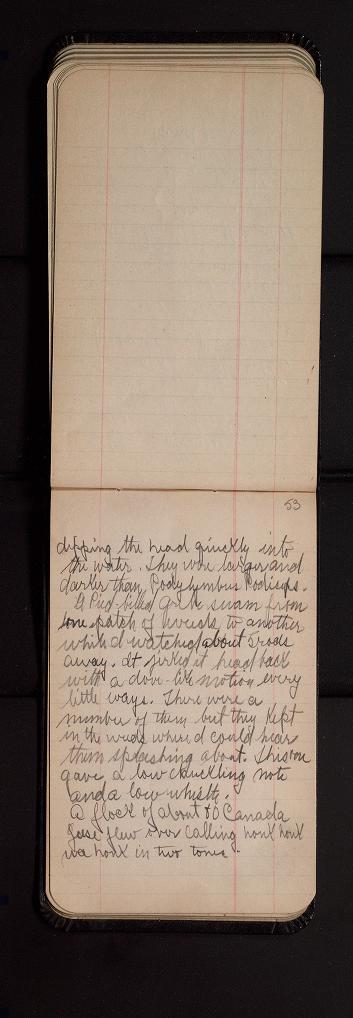 53
dipping the head quickly into
the water. They were larger and
darker than Podylymbus Podiceps.
A Pied-billed Grebe swam from
one patch of weeds to another
while I watched about 5 rods
away. It jerked it head back
with a dove-like motion every
little ways. There were a
number of them but they kept
in the weeds where I could hear
them splashing about. This one
gave a low chuckling note
and a low whistle.
A flock of about 80 Canada
Geese flew over calling honk honk
honk in two tones.